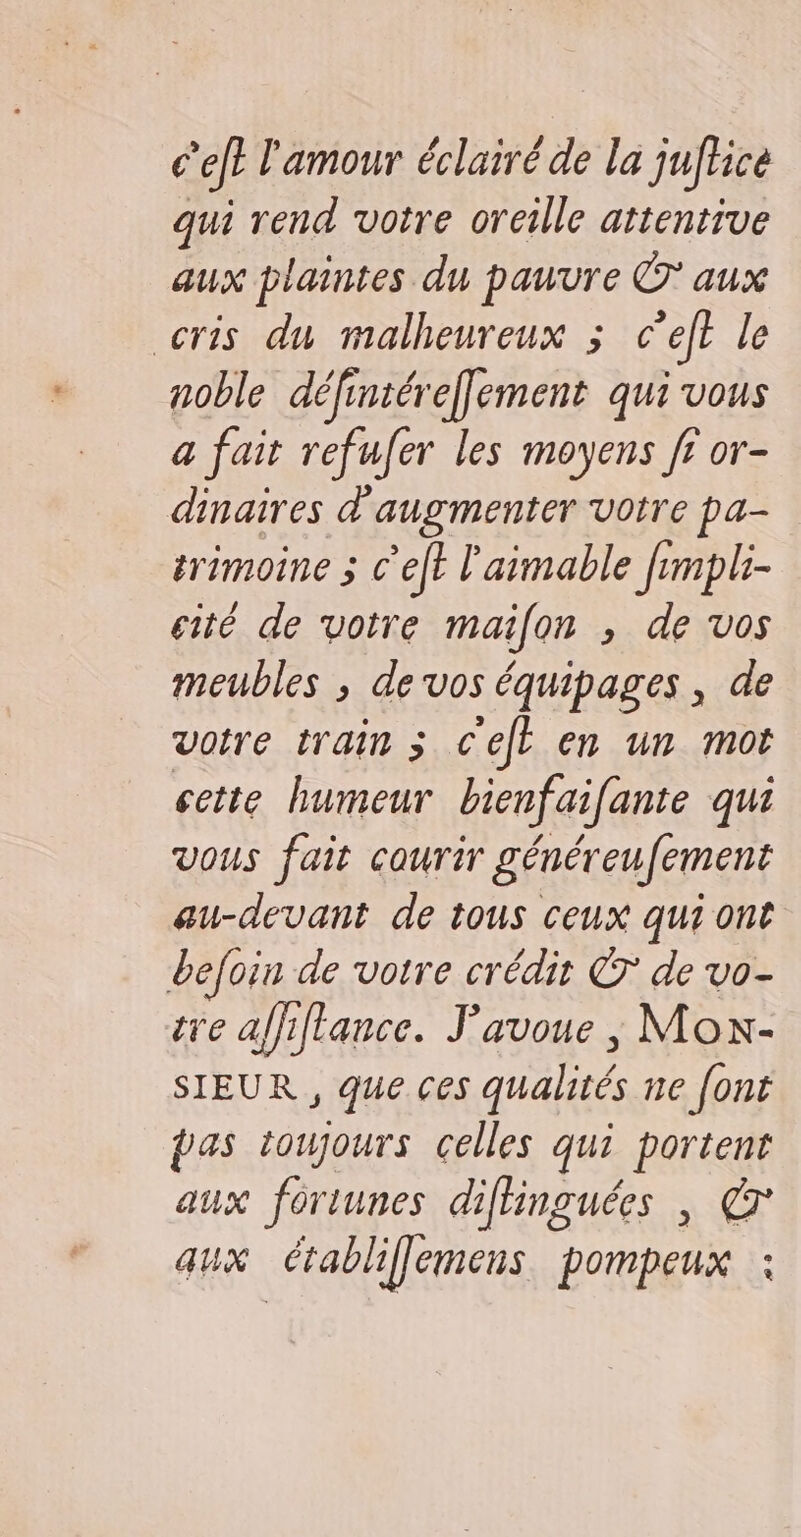 c'eſt l'amour éclairé de la juſtice
qui rend votre oreille attentive
aux plaintes du pauvre & aux
cris du malheureux ; c'eſt le
noble déſintéreſſement qui vous
a fait refuſer les moyens ſi or-
dinaires d'augmenter votre pa-
trimoine ; c'eſt l'aimable ſimpli-
cité de votre maiſon , de vos
meubles , de vos équipages , de
votre train ; c'eſt en un mot
cette humeur bienfaiſante qui
vous fait courir généreuſement
au-devant de tous ceux qui ont
beſoin de votre crédit & de vo-
tre aſſiſtance. J'avoue , MON-
SIEUR , que ces qualités ne ſont
pas toujours celles qui portent
aux fortunes diſtinguées , &
aux établiſſemens pompeux :